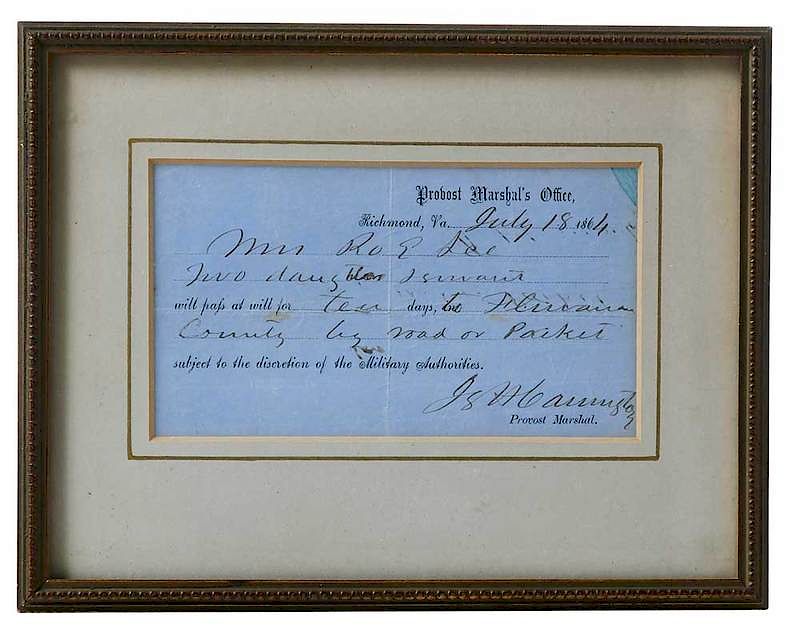 Provost Marshal's Office,
Richmond, Va. July 18 1864.
Mrs Ro E Lee
Two daughters 1 servant
will paſs at will for ten days, to Fluvanna
County by road or Packet
subject to the discretion of the Military Authorities.
Provost Marshal.